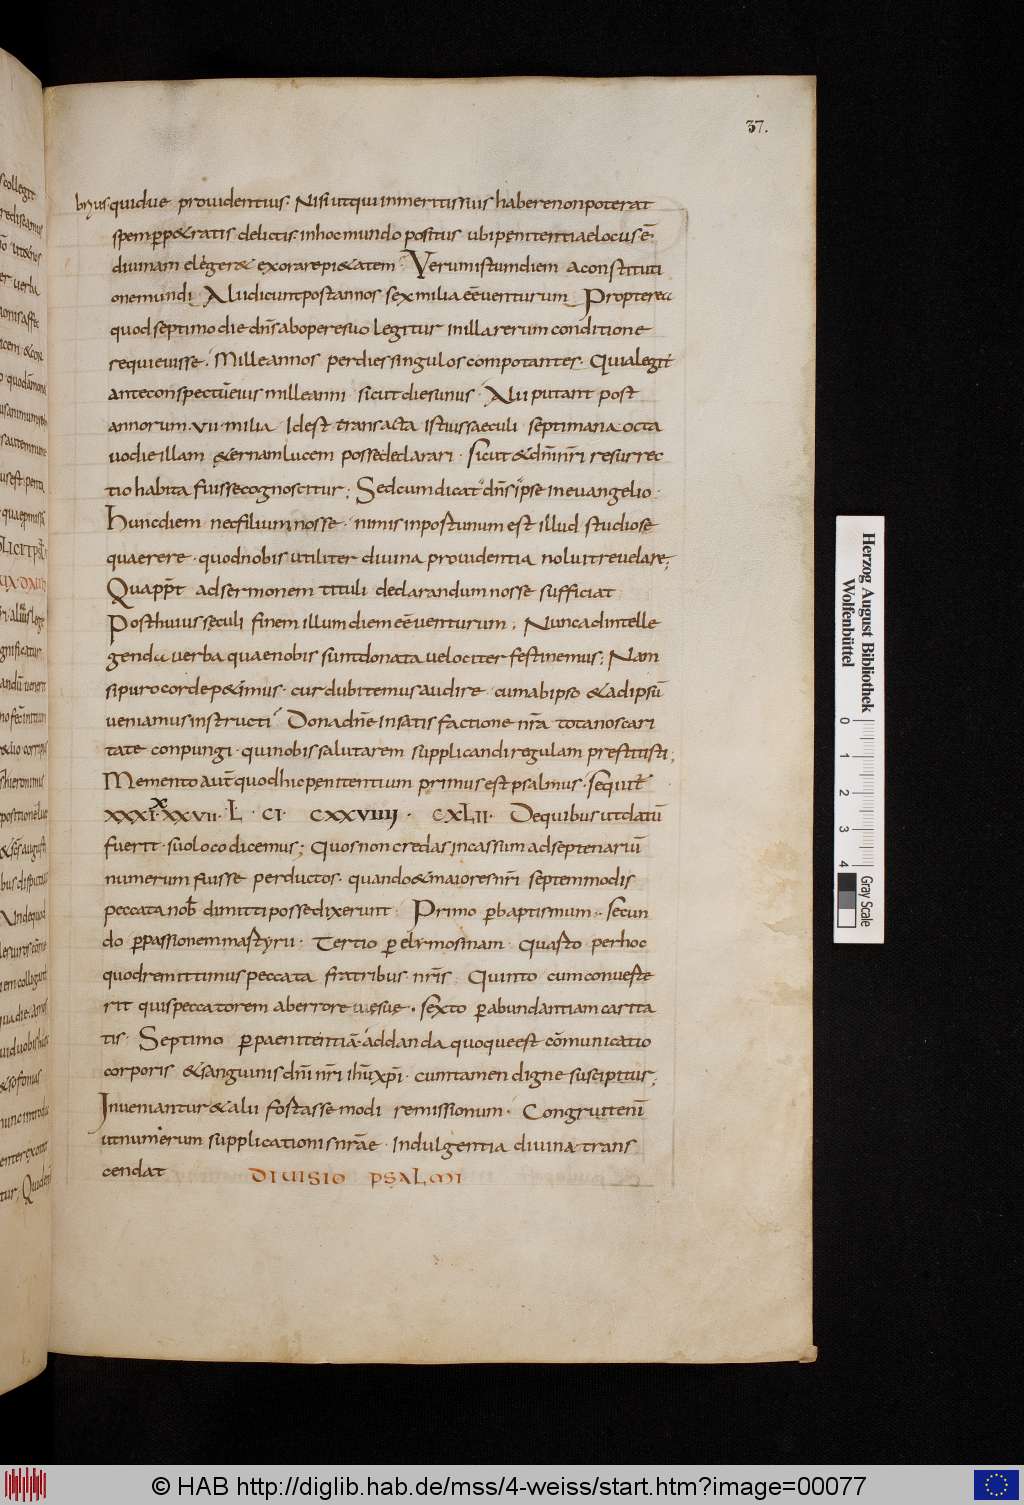 37.
brius quid ue prouidentius. Nisi ut qui inmeritis suis habere non poterat
spem pro p&ratis delictis inhoc mundo positus ubi penitentiae locus ē.
diuinam eleger& exorare pi&atem. Verum istum diem a constituti
one mundi. Alii dicunt post annos sex milia eē uenturum. Propterea
quod septimo die dn̄s ab opere suo legitur in illa rerum conditione
requieuisse. Mille annos per dies singulos computantes. Quia legit
ante conspectū eius mille anni sicut dies unus. Alii putant post
annorum .vii. milia Idest transacta istius saeculi septimana octa
uo die illam &ernam lucem posse declarari. Sicut & dn̄i nr̄i resurrec
tio habita fuisse cognoscitur; Sed cum dicat dn̄s ipse in euangelio.
hunc diem nec filium nosse. nimis inportunum est illud studiose
quaerere. quod nobis utiliter diuina prouidentia noluit reuelare;
Quapp̄t ad sermonem tituli declarandum nosse sufficiat
Post huius seculi finem illum diem eē uenturum. Nunc ad intelle
genda uerba quae nobis sunt donata uelociter festinemus; Nam
si puro corde p&imus. cur dubitemus audire cum ab ipso & ad ipsū
ueniamus instructi Dona dn̄e in satisfactione nr̄a tota nos cari
tate conpungi. qui nobis salutarem supplicandi regulam prestitisti;
Memento aut̄ quod hic penitentium primus est psalmus. sequit̄
xxxi. xxxvii. L. ci. cxxviiii. cxlii. De quibus ut datū
fuerit. suo loco dicemus; Quos non credas incassum ad septenariū
numerum fuisse perductos. quando & maiores nr̄i septem modis
peccata nob̄ dimitti posse dixerunt. Primo p baptismum. secun
do p passionem martyrii. Tertio p elymosinam. Quarto per hoc
quod remittimus peccata fratribus nr̄is. Quinto cum conuerte
rit quis peccatorem ab errore uię suę. sexto p abundantiam carita
tis. Septimo p paenitentiā. addanda quoque est cōmunicatio
corporis & sanguinis dn̄i nr̄i ih̄u xp̄i. cum tamen digne suscipitur;
Inueniantur & alii fortasse modi remissionum. Congruit enī
ut numerum supplicationis nr̄ae. Indulgentia diuina trans
cendat DIUISIO PSALMI
Herzog August Bibliothek
Wolfenbüttel
0 1 2 3 4
Gray Scale
© HAB http://diglib.hab.de/mss/4-weiss/start.htm?image=00077